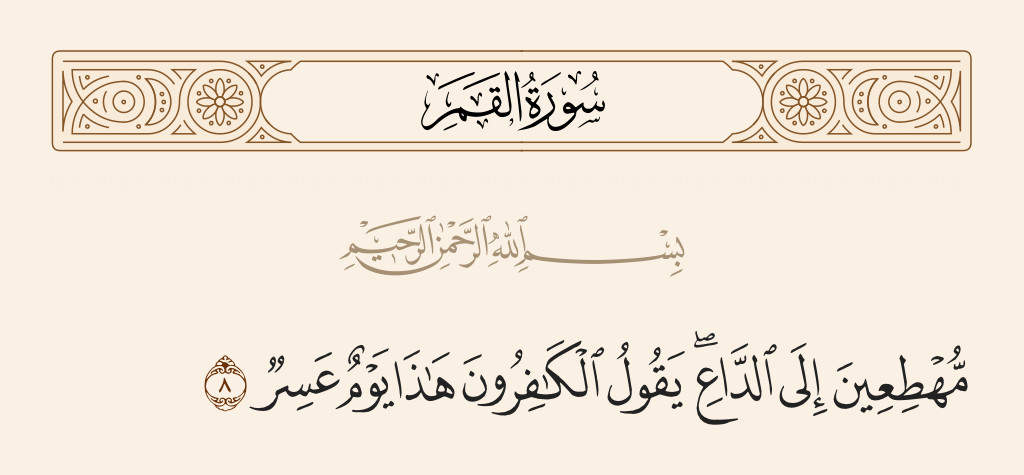 سُورَةُ القَمَرِ
بِسْمِ ٱللَّهِ ٱلرَّحْمَٰنِ ٱلرَّحِيمِ
مُّهْطِعِينَ إِلَى ٱلدَّاعِ ۖ يَقُولُ ٱلْكَٰفِرُونَ هَٰذَا يَوْمٌ عَسِرٌ ٨